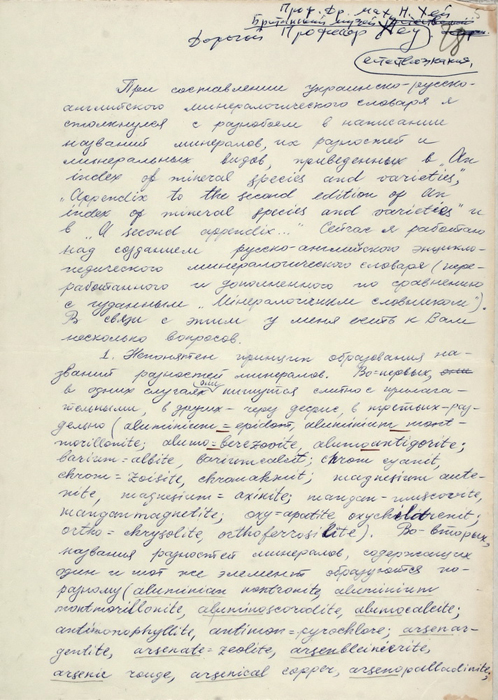 Проф. Др. Мах Н. Хей
Британский музей
Дорогой Профессор Hey
естествознания.
При составлении украинско-русско-
английского минералогического словаря я
столкнулся с разнобоем в написании
названий минералов, их разностей и
минеральных видов, приведенных в „An
index of mineral species and varieties",
„Appendix to the second edition of An
index of mineral species and varieties" и
в „A second appendix..." Сейчас я работаю
над созданием русско-английского энцикло-
педического минералогического словаря (пере-
работанного и дополненного по сравнению
с изданным „Мінералогічним словником").
В связи с этим у меня есть к Вам
несколько вопросов.
1. Непонятен принцип образования на-
званий разностей минералов. Во-первых,
в одних случаях они пишутся слитно с прилага-
тельными, в других - через дефис, в третьих - раз-
дельно (aluminium=epidote, aluminium mont-
morillonite; alumo=berezovite, alumoantigorite;
barium=albite, bariumcalcit; chrom cyanit,
chrom=zoisite, chromakmit; magnesium aute-
nite, magnesium=axinite; mangan-muscovite,
manganmagnetite; oxy=apatite oxychildrenit,
ortho=chrysolite, orthoferrosilite). Во-вторых,
названия разностей минералов, содержащих
один и тот же элемент образуются по-
разному (aluminian nontronite, aluminium
montmorillonite, aluminoscorodite, alumocalcite;
antimonophyllite, antimon=pyrochlore; arsenar-
gentite, arsenate=zeolite, arsenbleinierite,
arsenic rouge, arsenical copper, arsenopalladinite;